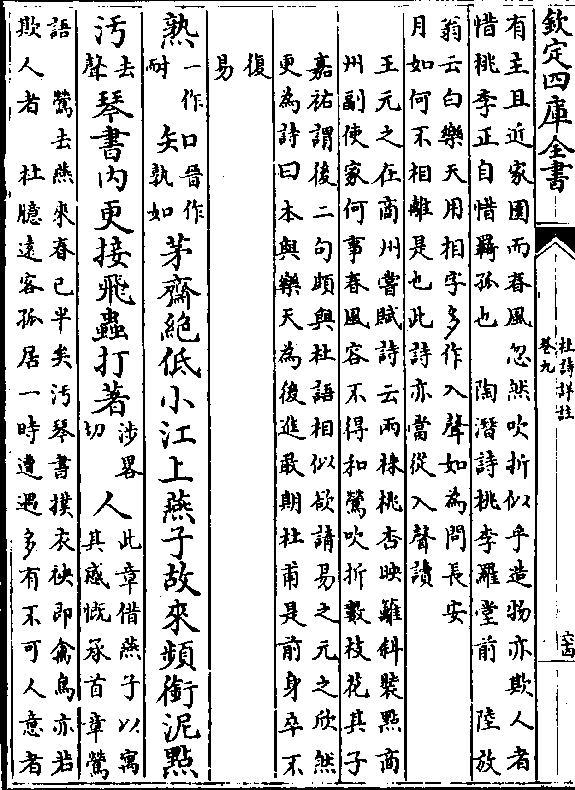 欽定四庫全書
杜詩詳註
卷九
六十四
有主且近家園而春風忽然吹折似乎造物亦欺人者
惜桃李正自惜羇孤也　陶潛詩桃李羅堂前　陸放
翁云白樂天用相字多作入聲如為問長安
月如何不相離是也此詩亦當從入聲讀
王元之在商州嘗賦詩云兩株桃杏映籬斜裝點商
州副使家何事春風容不得和鶯吹折數枝花其子
嘉祐謂後二句頗與杜語相似欲請易之元之欣然
更為詩曰本與樂天為後進敢期杜甫是前身卒不
復
易
熟一作耐知晉作孰如茅齋絶低小江上燕子故來頻銜泥㸃
汚去聲琴書内更接飛蟲打著涉畧切人此章借燕子以寓其感慨承首章鶯
語　鶯去燕來春已半矣汚琴書撲衣袂即禽鳥亦若
欺人者　杜臆逺客孤居一時遭遇多有不可人意者